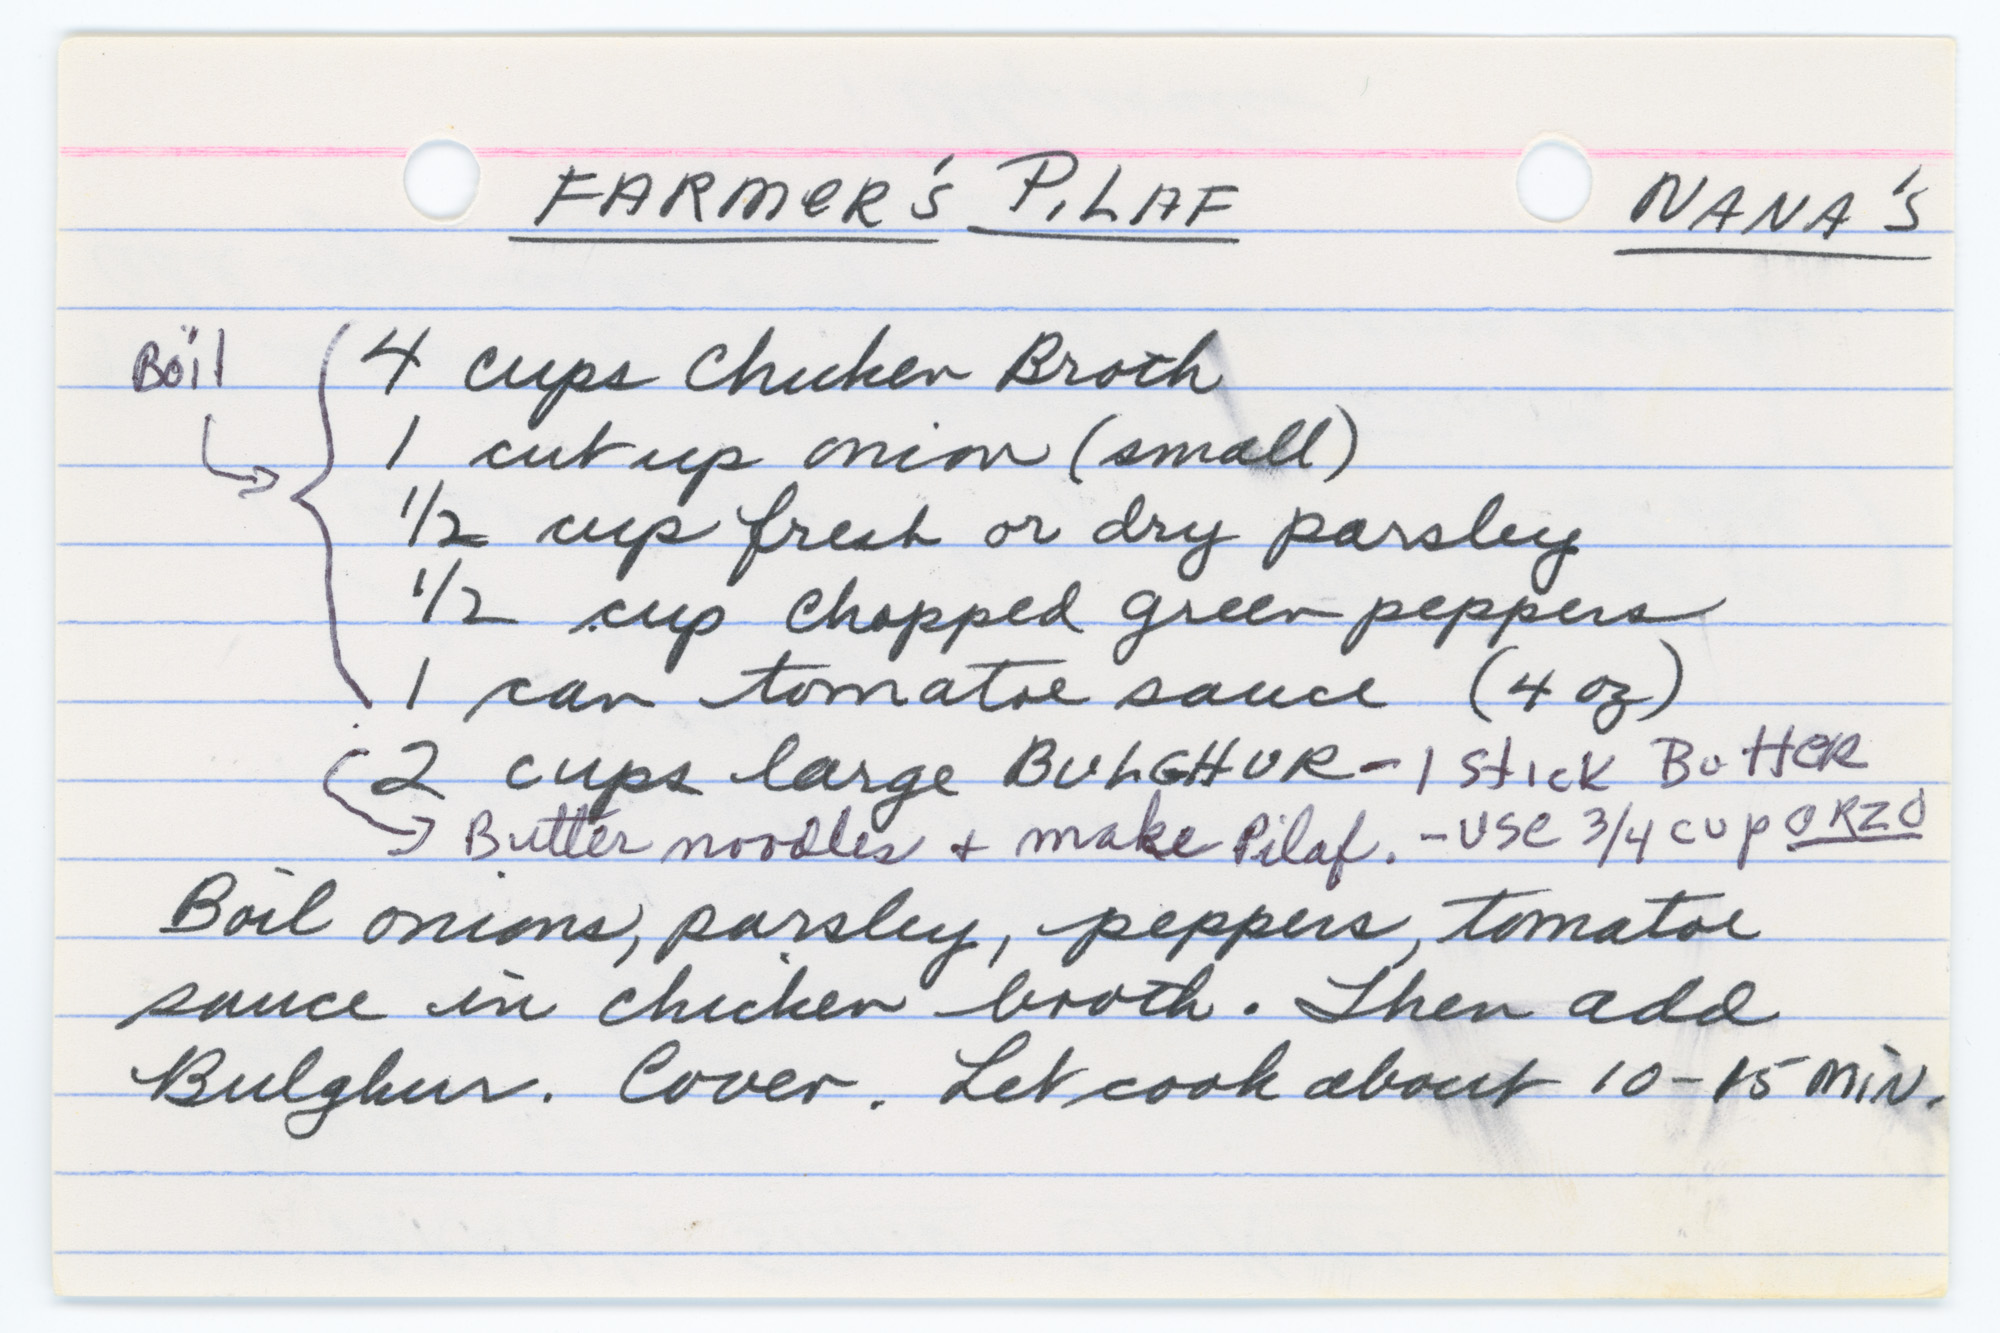 FARMER'S PILAF NANA'S
Boil 4 cups Chicken Broth
1 cut up onion (small)
1/2 cup fresh or dry parsley
1/2 cup chopped green peppers
1 can tomatoe sauce (4 oz)
2 cups large BULGHUR - 1 Stick Butter
Butter noodles + make Pilaf. - USE 3/4 cup ORZO
Boil onions, parsley, peppers, tomatoe
sauce in chicken broth. Then add
Bulghur. Cover. Let cook about 10-15 MIN.